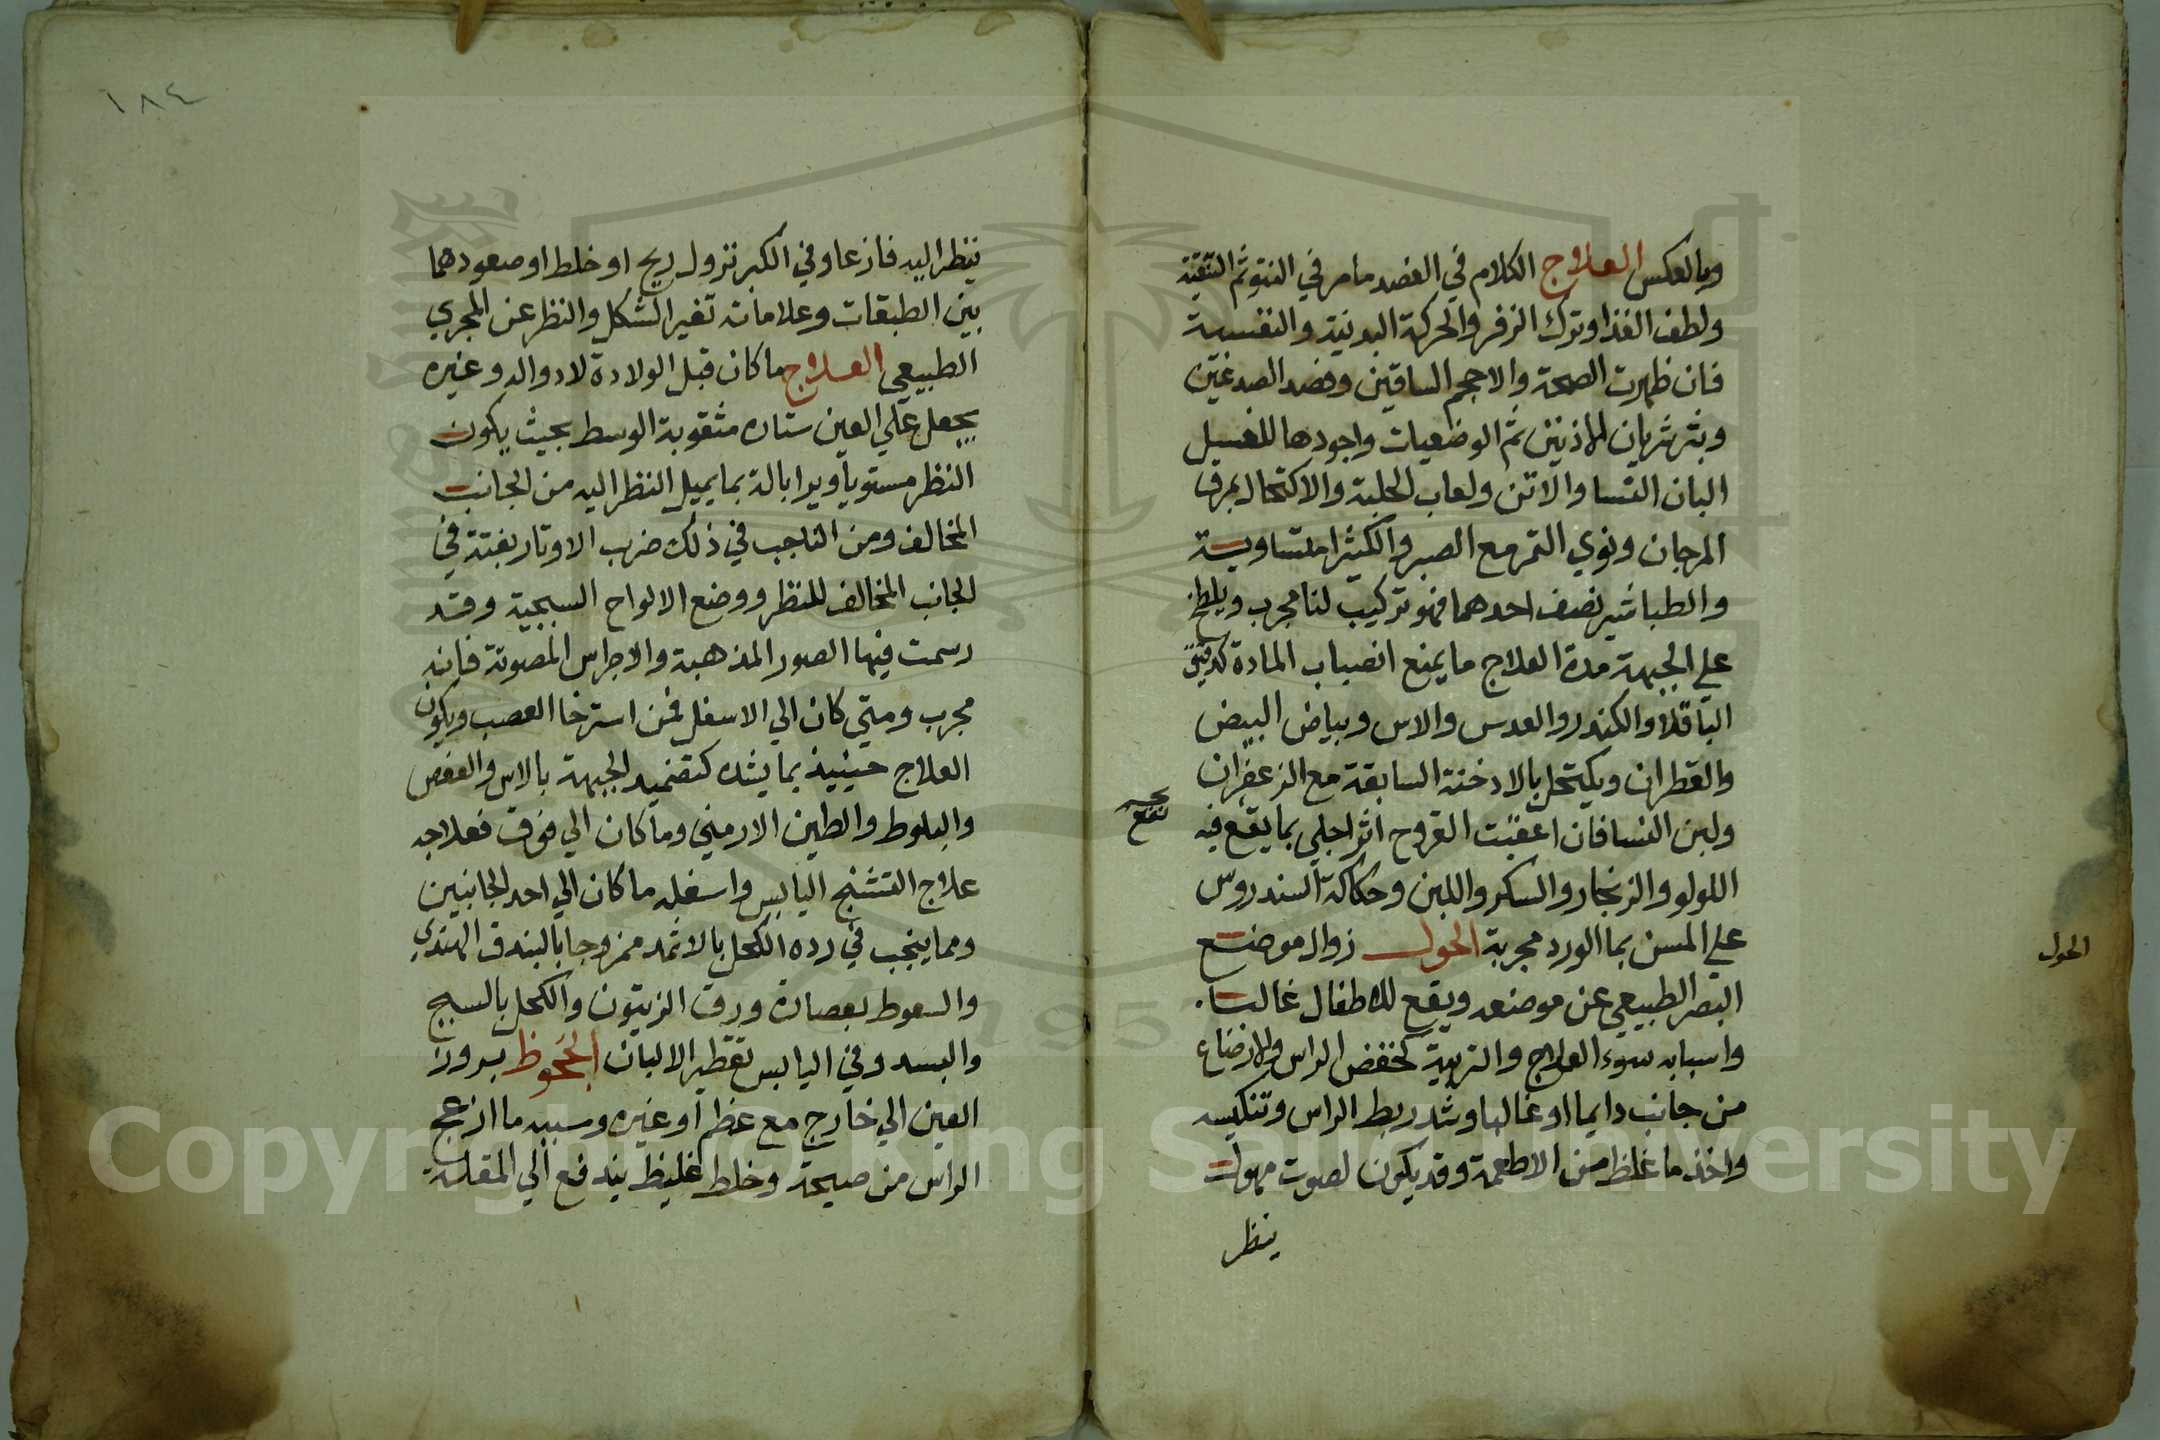 وبالعكس العلاج الكلام في الفصد ما مر في النتو ثم التنقية
ولطف الغذا وترك الزفر والحركة البدنية والنفسية
فان ظهرت الصحة والا حجم الساقين وفصد الصدغين
وبتر شريان الاذنين ثم الوضعيات واجودها للغسيل
البان النسا والاتن ولعاب الحلبة والاكتحال بمرق
المرجان ونوي التمر مع الصبر والكثيرا متساوية
والطباشير نصف احدهما فهو تركيب لنا مجرب ويلطخ
علي الجبهة مدة العلاج ما يمنع انصباب المادة كدقيق
الباقلا والكندر والعدس والاس وبياض البيض
والقطران ويكتحل بالادخنة السابقة مع الزعفران
ولبن النسا فان اعقبت القروح اثرا جلي بما يقع فيه
اللولو والزنجار والسكر واللبن وحكاكة السندروس
علي المسن بما الورد مجربة الحول زوال موضع
البصر الطبيعي عن موضعه ويقع للاطفال غالبا
واسبابه سوء العلاج والتربية كخفض الراس والارضاع
من جانب دايما او غالبا وشد ربط الراس وتنكيسه
واخذ ما غلظ من الاطعمة وقد يكون لصوت مهول
ينظر
الحول
١٨٤
ينظر اليه فازعا وفي الكبر نزول ريح او خلط او صعودهما
بين الطبقات وعلاماته تغير الشكل والنظر عن المجري
الطبيعي العلاج ما كان قبل الولادة لا دوا له وغيره
يجعل علي العين ستاره مثقوبة الوسط بحيث يكون
النظر مستويا ويرا بالة بما يميل النظر اليه من الجانب
المخالف ومن الناجب في ذلك ضرب الاوتار بغتة في
الجانب المخالف للنظر ووضع الالواح السبجية وقد
رسمت فيها الصور المذهبة والاجراس المصوتة فانه
مجرب ومتي كان الي الاسفل فمن استرخا العصب ويكون
العلاج حينيذ بما يشده كتضميد الجبهة بالاس والعفص
والبلوط والطين الارمني وما كان الي فوق فعلاجه
علاج التشنج اليابس واسفله ما كان الي احد الجانبين
ومما ينجب في رده الكحل بالاثمد ممزوجا بالبندق الهندي
والسعوط بعصارة ورق الزيتون والكحل بالسبج
والبسد وفي اليابس تقطير الالبان الجحوظ بروز
العين الي خارج مع عظم او غيره وسببه ما ازعج
الراس من صيحة وخلط غليظ يندفع الي المقلة
Copyright © King Saud University
195